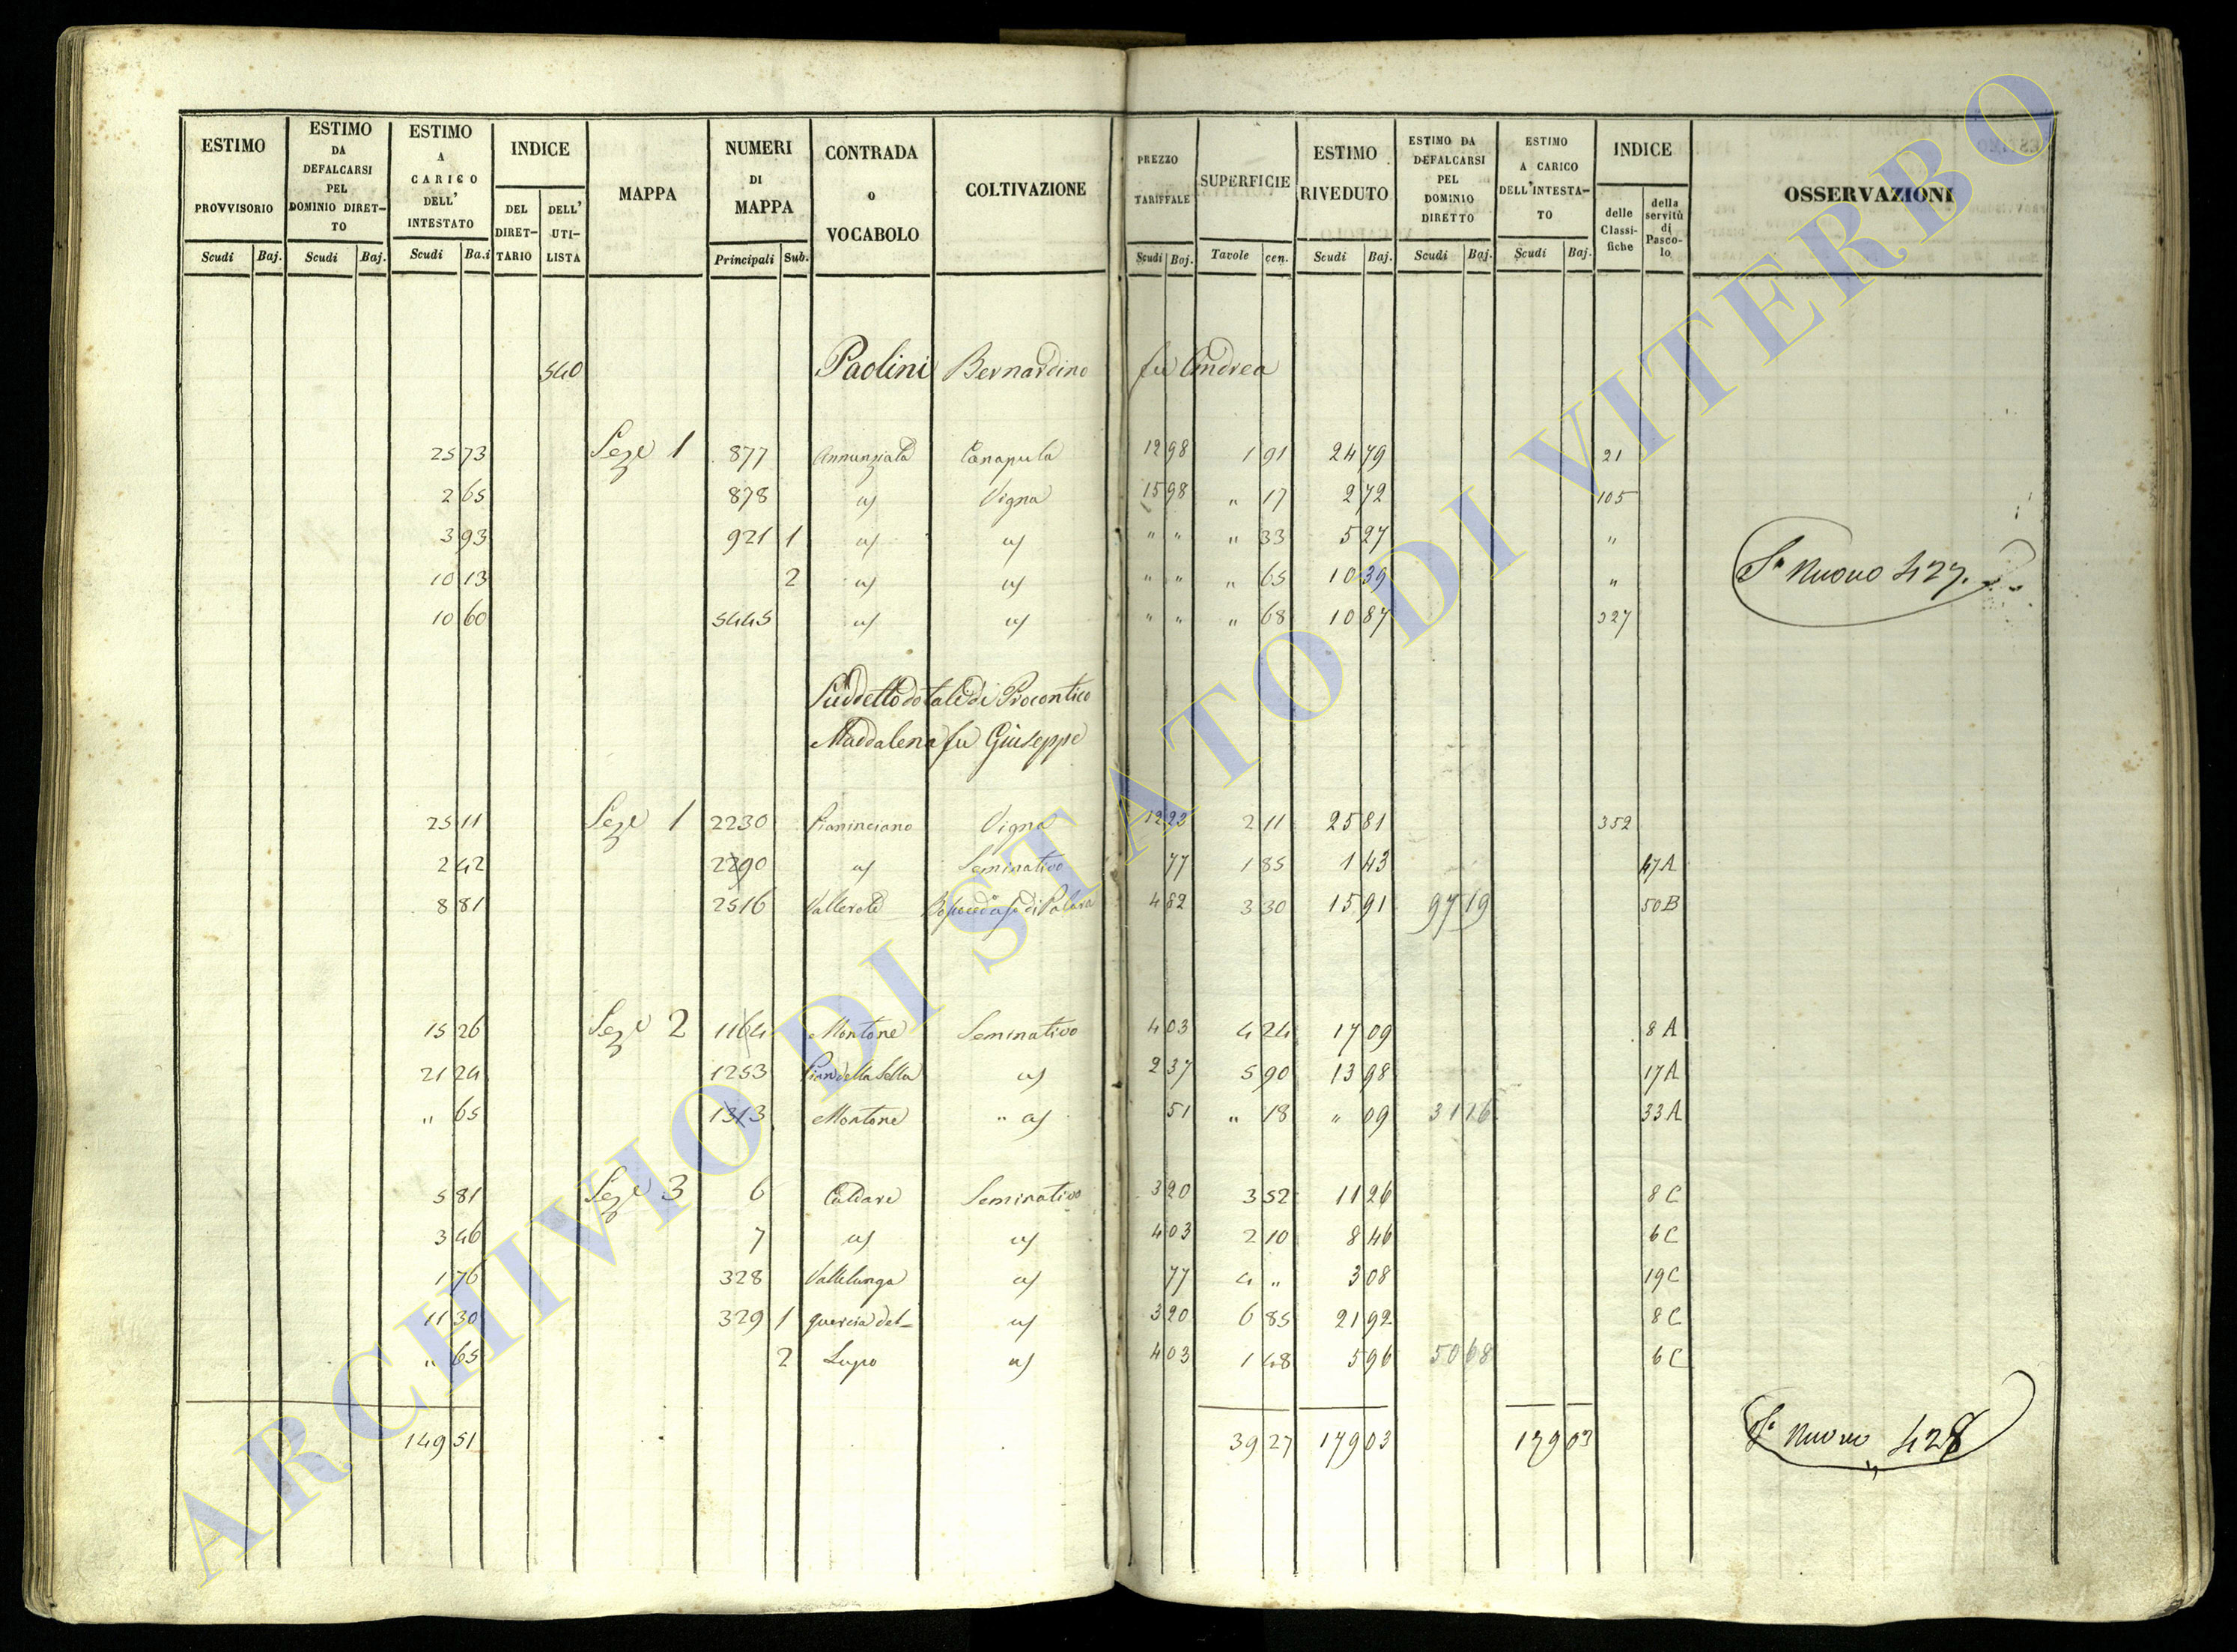 ESTIMO PROVVISORIO Scudi Baj.
ESTIMO DA DEFALCARSI PEL DOMINIO DIRET-TO Scudi Baj.
ESTIMO A CARICO DELL' INTESTATO Scudi Ba.i
INDICE DEL DIRET-TARIO DELL' UTI-LISTA
MAPPA
NUMERI DI MAPPA Principali Sub.
CONTRADA o VOCABOLO
COLTIVAZIONE
PREZZO TARIFFALE Scudi Baj.
SUPERFICIE Tavole cen.
ESTIMO RIVEDUTO Scudi Baj.
ESTIMO DA DEFALCARSI PEL DOMINIO DIRETTO Scudi Baj.
ESTIMO A CARICO DELL'INTESTA-TO Scudi Baj.
INDICE delle Classi-fiche della servitù di Pasco-lo
OSSERVAZIONI
540 Paolini Bernardino fu Andrea
25 73 Seze 1 877 Annunziata Canapula 12 98 1 91 24 79 21
2 65 878 " Vigna 15 98 " 17 2 72 105
3 93 921 1 " " " " " 33 5 27 "
10 13 2 " " " " " 65 10 39 "
Sa Nuovo 427.
10 60 5445 " " " " " 68 10 87 327
Suddetto dotale di Procontico
Maddalena fu Giuseppe
25 11 Seze 1 2230 Pianinciano Vigna 12 23 2 11 25 81 352
2 42 2290 " Seminativo 77 1 85 1 43 47 A
8 81 2516 4 82 3 30 15 91 97 19 50 B
15 26 Seze 2 1164 Montone Seminativo 4 03 4 24 17 09 8 A
21 24 1253 Pian della Sella " 2 37 5 90 13 98 17 A
" 65 1313 Montone " 51 " 18 " 09 31 16 33 A
5 81 Seze 3 6 Caldare Seminativo 3 20 3 52 11 26 8 C
3 46 7 " " 4 03 2 10 8 46 6 C
1 76 328 Vallelunga " 77 4 " 3 08 19 C
11 30 329 1 Quercia del- " 3 20 6 85 21 92 8 C
" 65 2 Lupo " 4 03 1 48 5 96 50 68 6 C
149 51 39 27 179 03 179 03
Sa Nuovo 428
ARCHIVIO DI STATO DI VITERBO